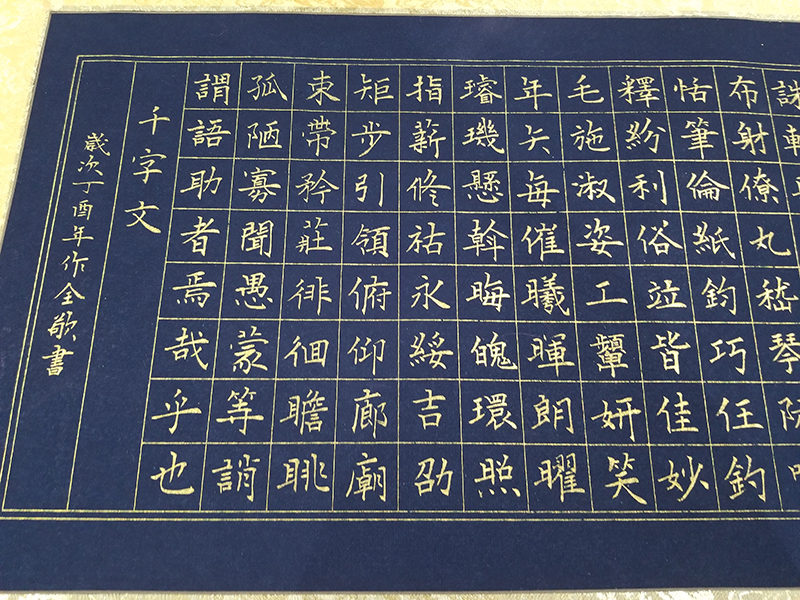 布射僚丸嵇琴
恬筆倫紙鈞巧任釣
釋紛利俗竝皆佳妙
毛施淑姿工顰妍笑
年矢每催曦暉朗曜
璿璣懸斡晦魄環照
指薪修祜永綏吉劭
矩步引領俯仰廊廟
束帶矜莊徘徊瞻眺
孤陋寡聞愚蒙等誚
謂語助者焉哉乎也
千字文
歲次丁酉年作全書